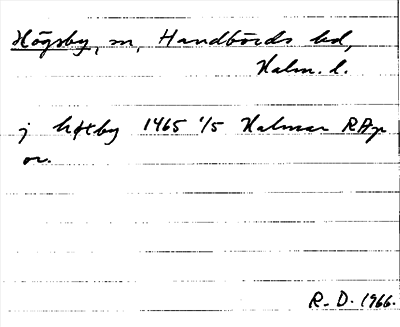 Högsby, sn, Handbörds hd,
Kalm. l.
j høtby 1465 1/5 Kalmar RAp
or.
R. D. 1966.